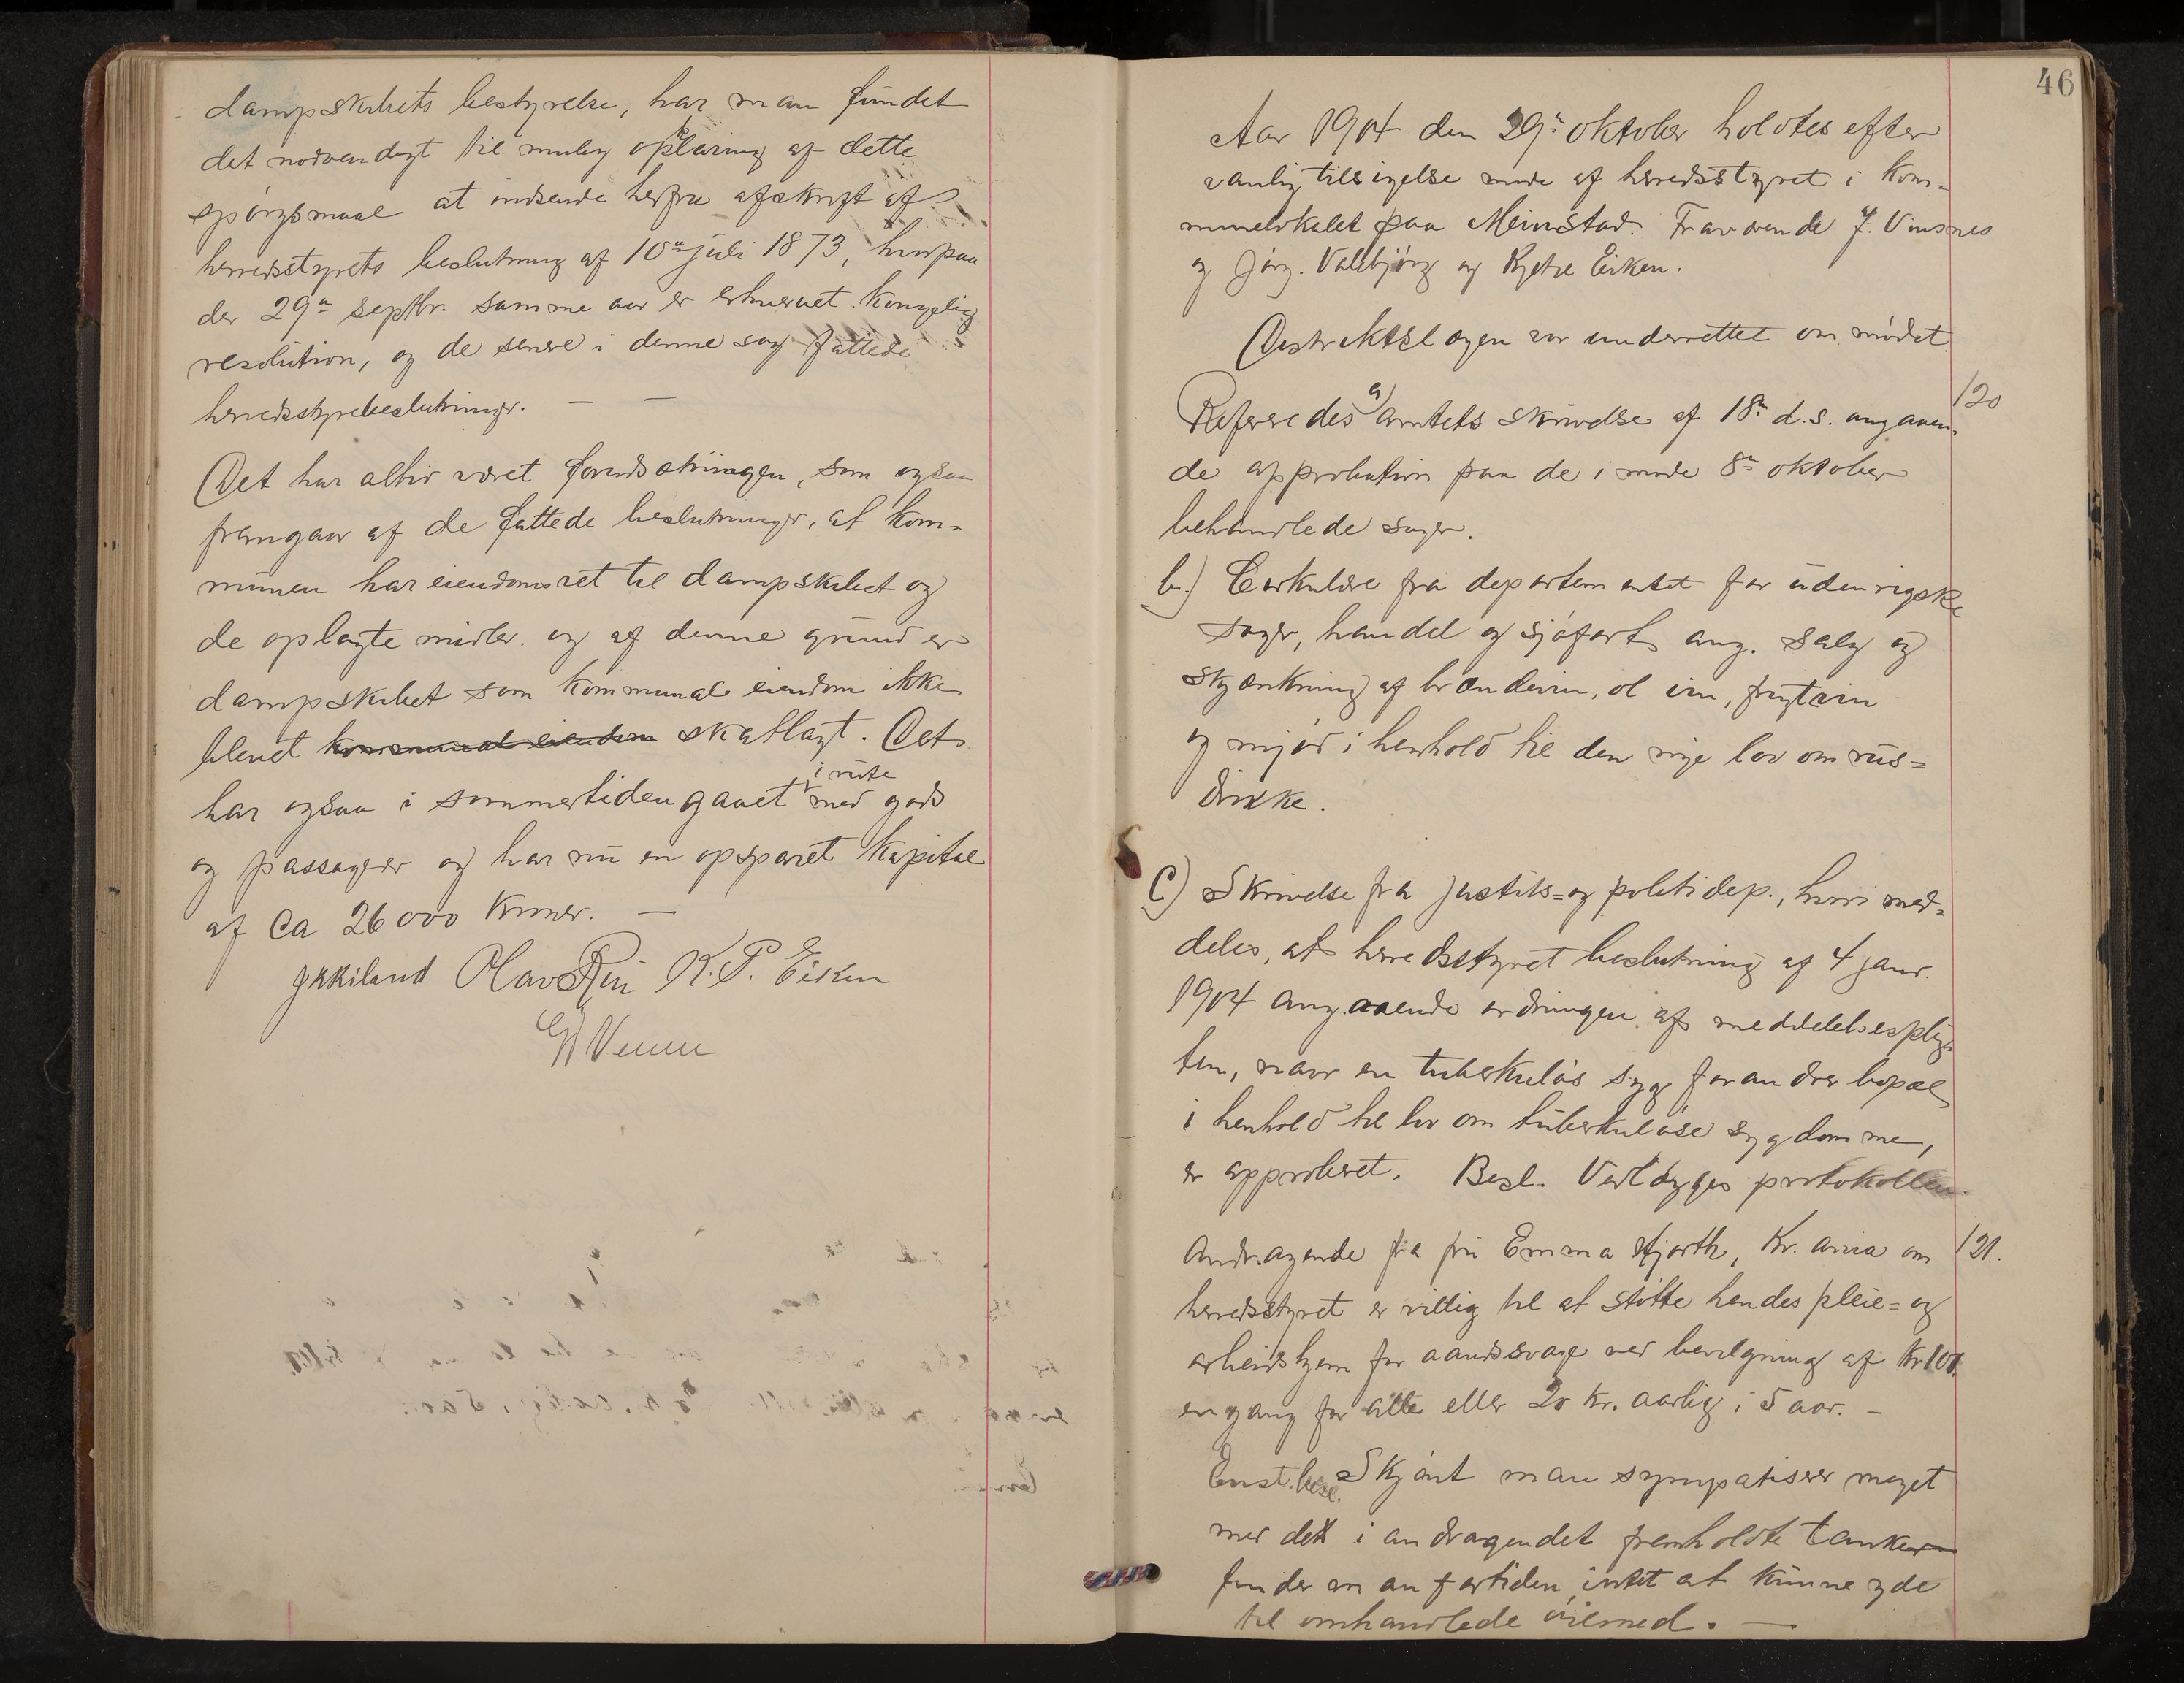 dampskibets bestyrelse, har man fundet
det nødvendigt til mulig opklaring af dette
spørgsmaal at indsende herfra afskrift af
herredsstyrets beslutning af 10de juli 1873, hvorpaa
der 29de septbr. samme aar er erhvervet kongelig
resolution, og de senere i denne sag fattede
herredsstyrebeslutninger. — —
Det har altid været forudsætningen, som ogsaa
fremgaar af de fattede beslutninger, at kom-
munen har eiendomsret til dampskibet og
de oplagte midler. og af denne grund er
dampskibet som kommunal eiendom ikke
blevet kommunal eiendom skatlagt. Det
har ogsaa i sommertiden gaaet i rute med gods
og passagerer og har nu en opsparet kapital
af Ca 26000 kroner. —
Olav Rui K. P. Eisken
46
Aar 1904 den 29de oktober holdtes efter
vanlig tilsigelse møde af herredsstyret i kom-
munelokalet paa Meinstad. Fraværende J. Vinsnes
og Jørg. Valebjørg og Eisken.
Distriktslægen var underrettet om mødet.
120
Refereredes a) amtets skrivelse af 18de d.s. angaaen-
de approbation paa de i møde 8de oktober
behandlede sager.
b.) Cirkulære fra departementet for udenrigske
sager, handel og sjøfart ang. salg og
skjænkning af brændevin, øl, vin, frugtvin
og mjød i henhold til den nye lov om rus=
drikke.
C) Skrivelse fra justits= og politidep., hvori med=
deles, at herredsstyret beslutning af 4 janr.
1904 angaaende ordningen af meddelelsesplig
ten, naar en tuberkuløs syg forandrer bopæl
i henhold til lov om tuberkuløse sygdomme,
er approberet. Besl. Vedlægges protokollen
121.
Andragende fra fru Emma Hjorth, Kr.ania om
herredsstyret er villig til at støtte hendes pleie= og
arbeidshjem for aandssvage ved bevilgning af Kr 100
en gang for alle eller 20 kr. aarlig i 5 aar. —
Enst. besl. Skjønt man sympatiserer meget
med det i andragendet fremholdte tanker
finder man for tiden intet at kunne yde
til omhandlede øiemed. —